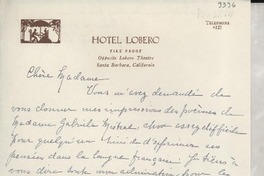 9336
HOTEL LOBERO
FIRE PROOF
Opposite Lobero Theatre
Santa Barbara, California
TELEPHONE
Chère Madame
Vous m'avez demandé de
vous donner mes impressions des poèmes de
Madame Gabriela Mistral chose assez difficile
Pour quelqu'un d'exprimer ses
pensées dans la langue française.
vous dire mon admiration pour les